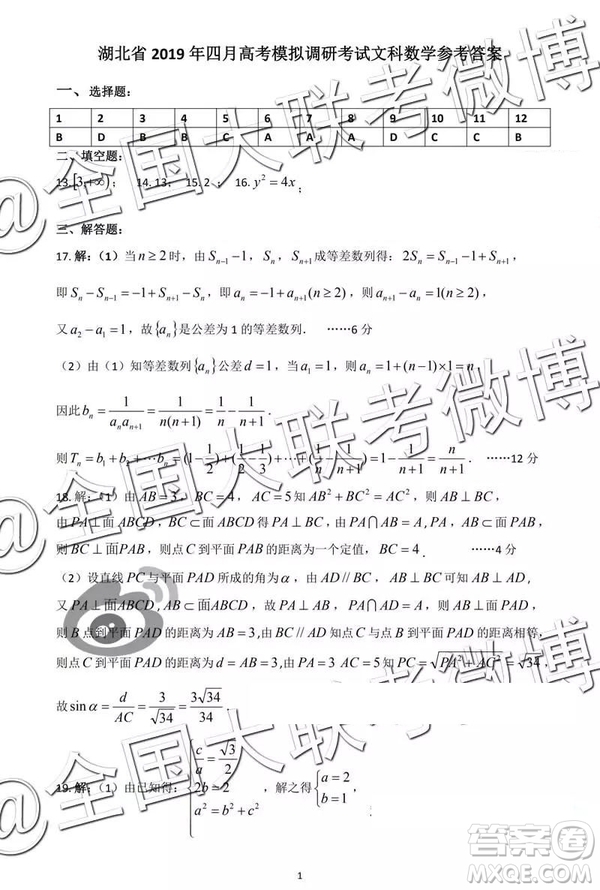 湖北省 2019 年四月高考模拟调研考试文科数学参考答案
一、 选择题:
1 2 3 4 5 6 7 8 9 10 11 12
B D B B C A A A D C C B
二、填空题:
13.[3,+∞); 14.13; 15.2 ; 16. y²=4x;
三、解答题:
17.解:(1)当 n≥2 时,由 Sₙ₋₁−1, Sₙ, Sₙ₊₁ 成等差数列得: 2Sₙ=Sₙ₋₁−1+Sₙ₊₁,
即 Sₙ−Sₙ₋₁=−1+Sₙ₊₁−Sₙ,即 aₙ=−1+aₙ₊₁(n≥2),则 aₙ₊₁−aₙ=1(n≥2),
又 a₂−a₁=1,故{aₙ}是公差为 1 的等差数列. ……6 分
(2)由(1)知等差数列{aₙ}公差 d=1,当 a₁=1,则 aₙ=1+(n−1)×1=n
因此 bₙ=1/(aₙaₙ₊₁)=1/(n(n+1))=1/n−1/(n+1).
则 Tₙ=b₁+b₂+⋯bₙ=(1−1/2)+(1/2−1/3)+⋯+(1/n−1/(n+1))=1−1/(n+1)=n/(n+1) ……12 分
18.解:(1)由 AB=3,BC=4,AC=5 知 AB²+BC²=AC²,则 AB⊥BC,
由 PA⊥面 ABCD,BC⊂面 ABCD 得 PA⊥BC,由 PA∩AB=A,PA,AB⊂面 PAB,
则 BC⊥面PAB,则点 C 到平面 PAB 的距离为一个定值,BC=4. ……4 分
(2)设直线 PC 与平面 PAD 所成的角为 α,由 AD//BC,AB⊥BC 知 AB⊥AD,
又 PA⊥面 ABCD,AB⊂面 ABCD,故 PA⊥AB,PA∩AD=A,PA,AD⊂面 PAD,
则 B 点到平面 PAD 的距离为 AB=3,由 BC//面 PAD 知点 B,C 到平面 PAD 的距离相等,
则点 C 到平面 PAD 的距离为 d=AB=3,由 PC=√(PA²+AC²)=√34,
故 sin α=d/AC=3/√34=3√34/34.
19.解:(1)由已知得:{c/a=√3/2 2b=2 a²=b²+c²,解之得{a=2 b=1,
1
@全国大联考微博
答案圈
MXQE.COM